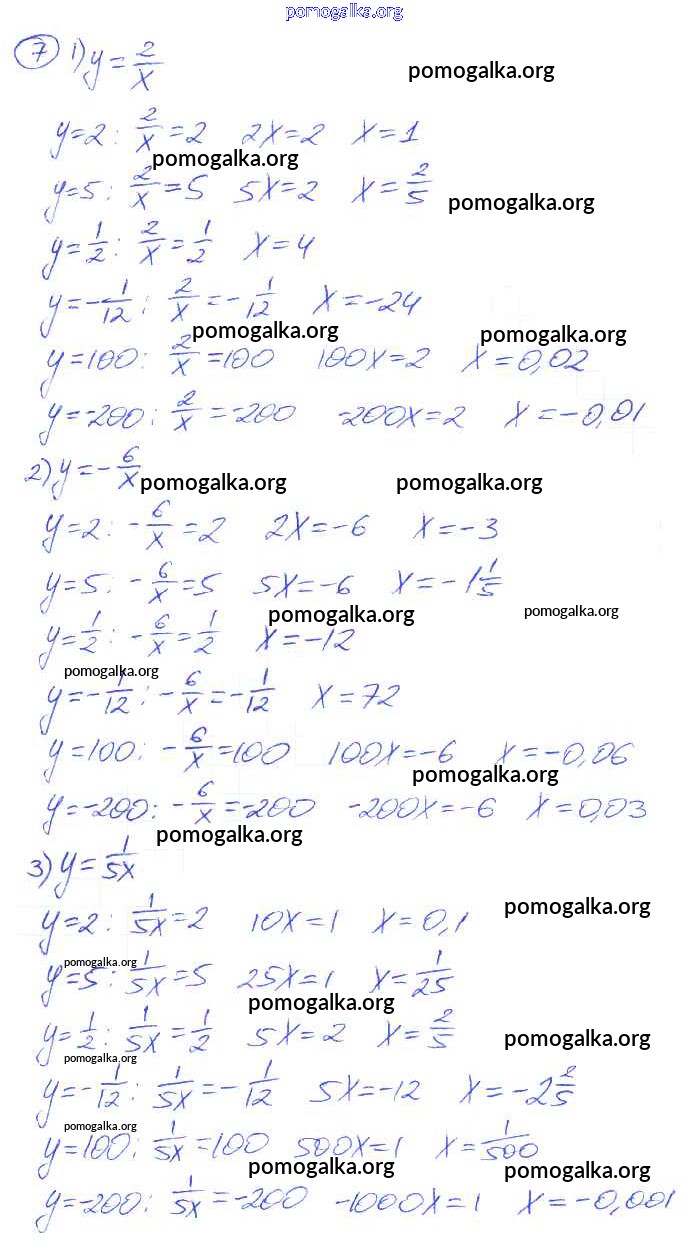 pomogalka.org
7 1) y = 2/x
pomogalka.org
y=2: 2/x = 2 2x=2 x=1
pomogalka.org
y=5: 2/x = 5 5x=2 x = 2/5
pomogalka.org
y = 1/2 : 2/x = 1/2 x=4
y = -1/12 : 2/x = -1/12 x=-24
pomogalka.org pomogalka.org
y=100: 2/x =100 100x=2 x=0,02
y=-200: 2/x =-200 -200x=2 x=-0,01
2) y = -6/x
pomogalka.org pomogalka.org
y=2: -6/x = 2 2x=-6 x=-3
y=5: -6/x = 5 5x=-6 x=-1 1/5
pomogalka.org pomogalka.org
y = 1/2 : -6/x = 1/2 x=-12
pomogalka.org
y = -1/12 : -6/x = -1/12 x=72
y=100: -6/x =100 100x=-6 x=-0,06
pomogalka.org
y=-200: -6/x =-200 -200x=-6 x=0,03
pomogalka.org
3) y = 1/5x
pomogalka.org
y=2: 1/5x = 2 10x=1 x=0,1
pomogalka.org
y=5: 1/5x = 5 25x=1 x = 1/25
pomogalka.org
y = 1/2 : 1/5x = 1/2 5x=2 x = 2/5
pomogalka.org
pomogalka.org
y = -1/12 : 1/5x = -1/12 5x=-12 x=-2 2/5
pomogalka.org
y=100: 1/5x =100 500x=1 x = 1/500
pomogalka.org pomogalka.org
y=-200: 1/5x =-200 -1000x=1 x=-0,001